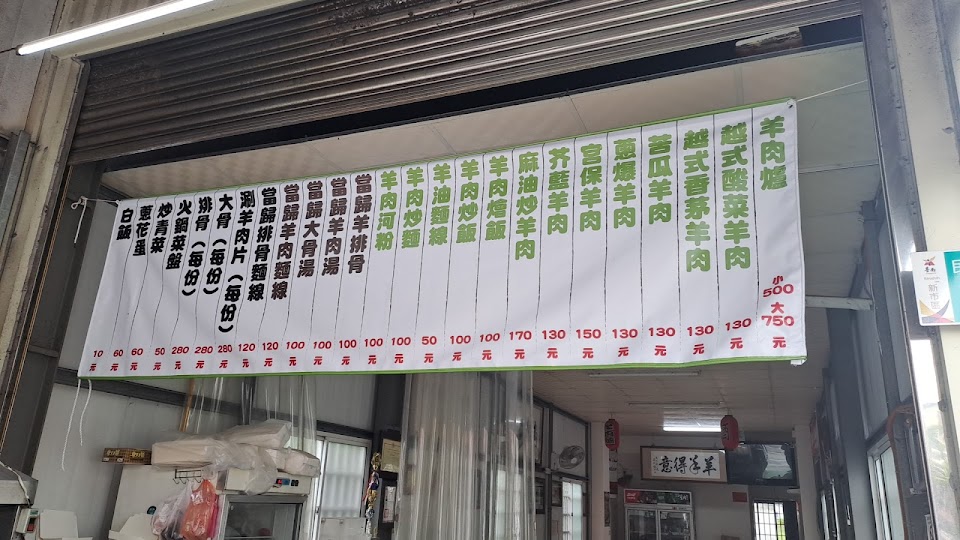 羊肉爐 小500 大750元
越式酸菜羊肉 130元
越式香茅羊肉 130元
苦瓜羊肉 130元
蔥爆羊肉 130元
宮保羊肉 150元
芥藍羊肉 130元
麻油炒羊肉 170元
羊肉燴飯 100元
羊肉炒飯 100元
羊油麵線 50元
羊肉炒麵 100元
羊肉河粉 100元
當歸羊排骨 100元
當歸羊肉湯 100元
當歸大骨湯 100元
當歸羊肉麵線 120元
當歸排骨麵線 120元
涮羊肉片(每份) 280元
大骨(每份) 280元
排骨(每份) 280元
火鍋菜盤 50元
炒青菜 60元
蔥花蛋 60元
白飯 10元
羊羊得意
新市區